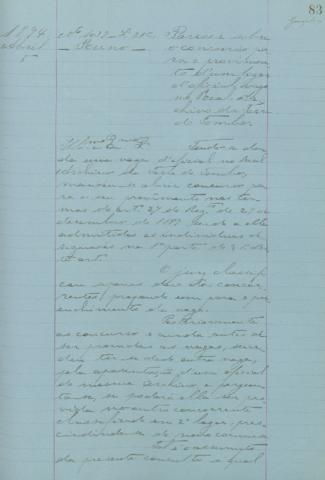 83
1894 Nº 1032 - L.º 21 C Parecer sobre
Abril Reino o concurso pa
5 ra o provimen
to d'um lugar
d'official
no Real Ar
chivo da Torre
do Tombo.
Ill.mo Ex.mo Sr. Tendo-se da
do uma vaga d'official no Real
Archivo da Torre do Tombo,
mandou-se abrir concurso pa
ra o seu provimento nos ter
mos do art. 27 do Reg. de 29 de
dezembro de 1887 sendo a elle
admittidos os individuos de
signados na 1ª parte do § 1º do
cit. art.
O jury classifi
cou apenas dois dos concor
rentes, propondo um para o pre
enchimento da vaga.
Posteriormente
ao concurso e ainda antes de
ser provida a vaga, succe
deu ter-se dado outra vaga,
pela aposentação d'um official
do mesmo Archivo, e pergun
ta-se, se poderá ella ser pro
vida no outro concorrente
classificado em 2º lugar, pres
cindindo-se de novo concurso.
Tal é o assumpto
da presente consulta á qual